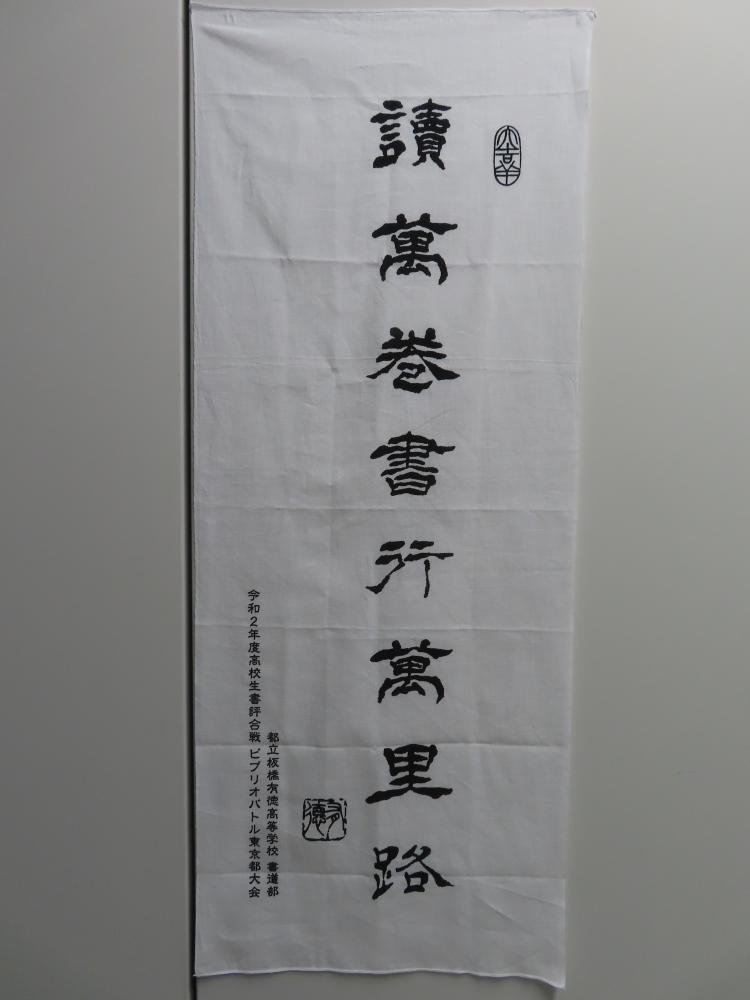 大吉羊
讀萬卷書行萬里路
有德
都立板橋有徳高等学校 書道部
令和2年度高校生書評合戦 ビブリオバトル東京都大会